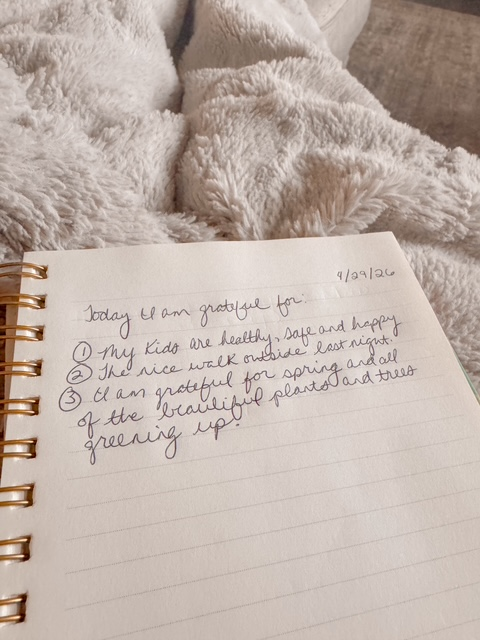 4/29/26
Today I am grateful for:
① My Kids are healthy, safe and happy
② The nice walk outside last night.
③ I am grateful for spring and all
of the beautiful plants and trees
greening up!